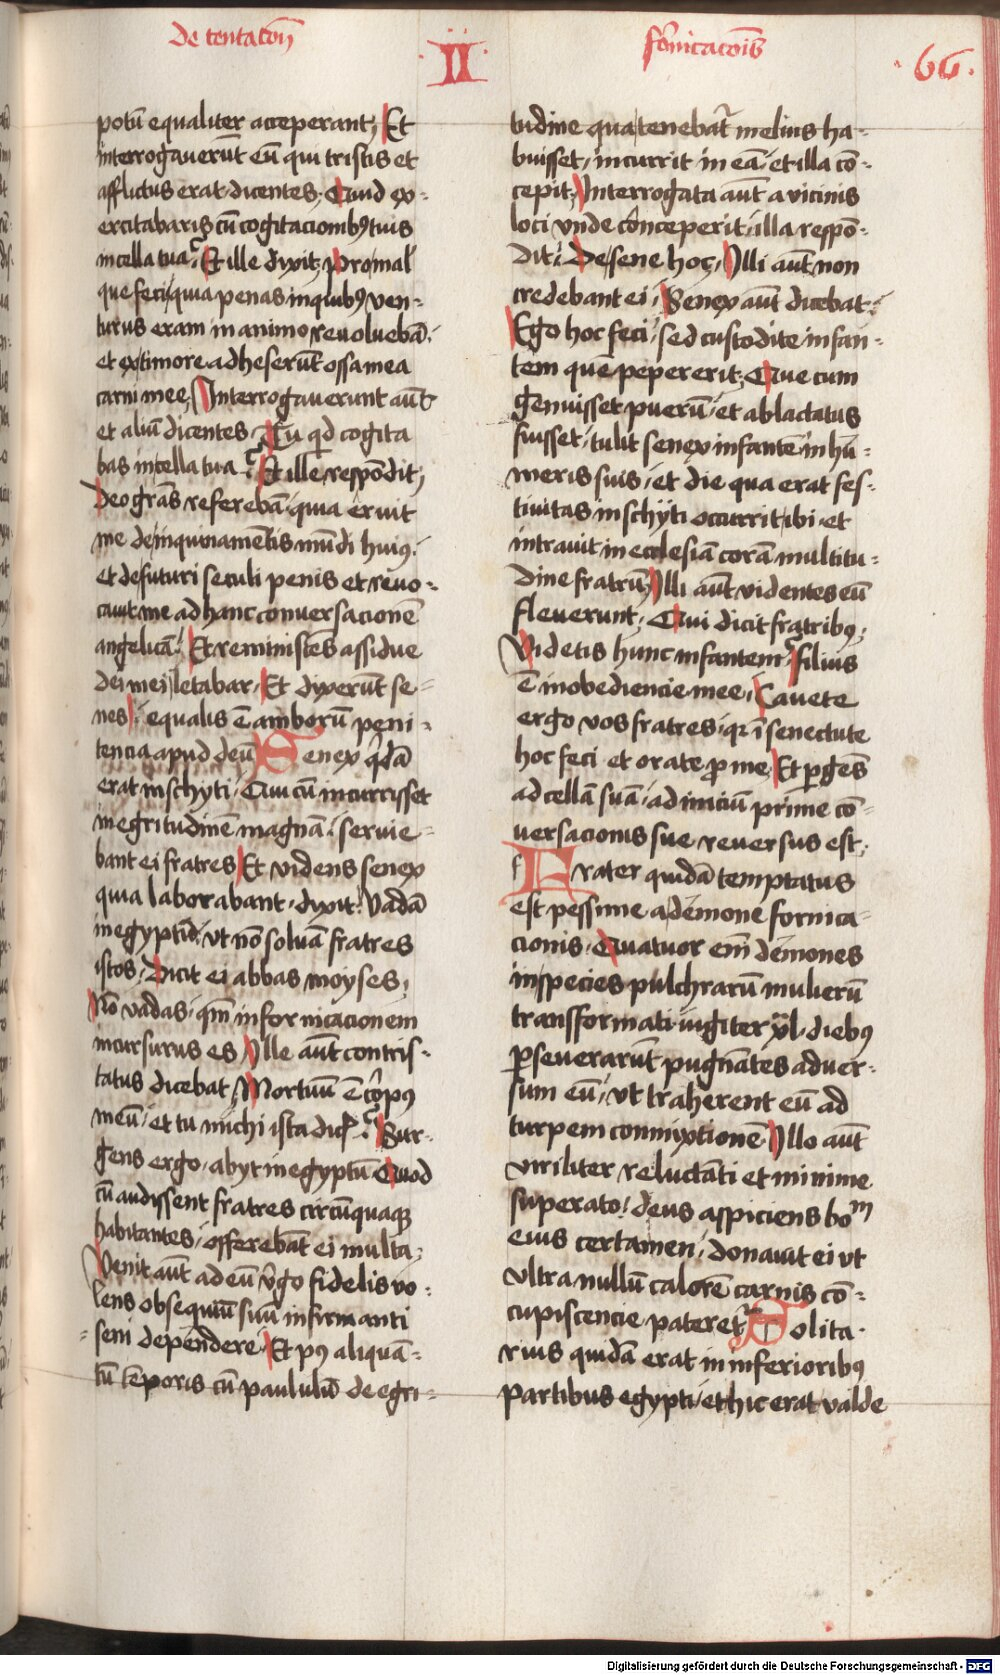 De tentacōn
II
fornicacōis
66
potū equaliter acceperant; Et
interrogauerūt eū qui tristis et
afflictus erat dicentes; Quid ex-
ercitabaris cū cogitacionibꝰ tuis
in cella tua? Et ille dixit; Pro mal'
que feci quia penas in quibꝰ ven-
turus eram in animo reuoluebā.
et ex timore adheserūt ossa mea
carni mee; Interrogauerunt aūt
et aliū dicentes. Tu qd cogita
bas in cella tua? Et ille respōdit;
Deo gras referebā. quia eruit
me de inquinamētis mūdi huiꝰ.
et de futuri seculi penis et reuo-
cauit me ad hanc conuersacionē
angelicā. Et reministēs assidue
dei mei letabar. Et dixerūt se-
nes. equalis ē amborū peni-
tencia apud deū. Senex qdā
erat in schyti. Qui cū incurrisset
in egritudinē magnā. seruie-
bant ei fratres Et videns senex
quia laborabant. dixit. Vadā
in egyptū. vt nō soluā fratres
istos. Dicit ei abbas moyses.
Nō vadas. qm̄ in fornicacionem
incursurus es. Ille aūt contris-
tatus dicebat; Mortuū ē corpꝰ
meū. et tu michi ista dicis? Sur-
gens ergo. abyt in egyptū Quod
cū audissent fratres circūquaqꝫ
habitantes. offerebāt ei multa.
Venit aūt ad eū vgo fidelis vo-
lens obsequiū suū infirmanti
seni dependere. Et pꝰ aliquā-
tū tēporis cū paululū de egri-
tudine qua tenebat melius ha-
buisset. incurrit in eā. et illa cō-
cepit; Interrogata aūt a vicinis
loci vnde conceperit. illa respō-
dit. De sene hoc. Illi aūt non
credebant ei. Senex aūt dicebat.
Ego hoc feci. sed custodite infan-
tem quē pepererit; Que cum
genuisset puerū. et ablactatus
fuisset. tulit senex infantē in hu-
meris suis. et die qua erat fes-
tiuitas in schyti occurrit ibi. et
intrauit in ecclesiā corā multitu-
dine fratrū; Illi aūt videntes eū
fleuerunt. Qui dicit fratribꝰ;
Videtis hunc infantem? filius
ē inobediencie mee. Cauete
ergo vos fratres. qꝛ ī senectute
hoc feci. et orate pro me; Et pergēs
ad cellā suā. ad iniciū prime cō-
uersacionis sue reuersus est;
Frater quidā temptatus
est pessime a demone fornica-
cionis. Quatuor em̄ demones
in species pulchrarū mulierū
transformati. iugiter xl. diebꝰ
perseuerarūt pugnātes aduer-
sum eū. vt traherent eū ad
turpem conmixtionē. Illo aūt
viriliter reluctāti et minime
superato. deus aspiciens bom
eius certamen. donauit ei vt
vltra nullū calorē carnis cō-
cupiscencie pateret. Solita-
rius quidā erat in inferioribꝰ
partibus egypti. et hic erat valde
Digitalisierung gefördert durch die Deutsche Forschungsgemeinschaft - DFG